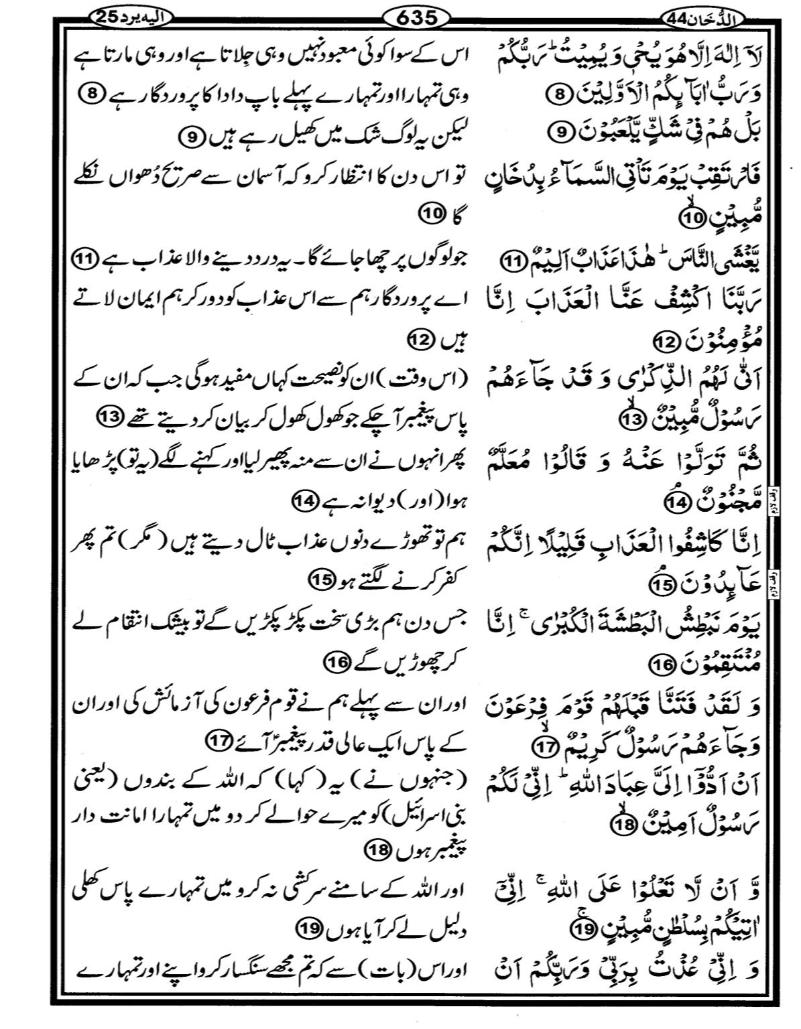 الدُّخَان44
635
الیہ یرد25
لَآ اِلٰهَ اِلَّا هُوَ يُحْيٖ وَيُمِيْتُ ؕ رَبُّكُمْ
وَرَبُّ اٰبَآىِٕكُمُ الْاَوَّلِيْنَ 8
بَلْ هُمْ فِيْ شَكٍّ يَّلْعَبُوْنَ 9
فَارْتَقِبْ يَوْمَ تَاْتِي السَّمَآءُ بِدُخَانٍ
مُّبِيْنٍ ۙ 10
يَّغْشَى النَّاسَ ؕ هٰذَا عَذَابٌ اَلِيْمٌ 11
رَبَّنَا اكْشِفْ عَنَّا الْعَذَابَ اِنَّا
مُؤْمِنُوْنَ 12
اَنّٰى لَهُمُ الذِّكْرٰى وَ قَدْ جَآءَهُمْ
رَسُوْلٌ مُّبِيْنٌ ۙ 13
ثُمَّ تَوَلَّوْا عَنْهُ وَ قَالُوْا مُعَلَّمٌ
مَّجْنُوْنٌ ۘ 14
وقف لازم
اِنَّا كَاشِفُوا الْعَذَابِ قَلِيْلًا اِنَّكُمْ
عَآىِٕدُوْنَ ۘ 15
وقف لازم
يَوْمَ نَبْطِشُ الْبَطْشَةَ الْكُبْرٰى ۚ اِنَّا
مُنْتَقِمُوْنَ 16
وَ لَقَدْ فَتَنَّا قَبْلَهُمْ قَوْمَ فِرْعَوْنَ
وَجَآءَهُمْ رَسُوْلٌ كَرِيْمٌ ۙ 17
اَنْ اَدُّوْٓا اِلَيَّ عِبَادَ اللّٰهِ ؕ اِنِّيْ لَكُمْ
رَسُوْلٌ اَمِيْنٌ ۙ 18
وَّ اَنْ لَّا تَعْلُوْا عَلَى اللّٰهِ ۚ اِنِّيْٓ
اٰتِيْكُمْ بِسُلْطٰنٍ مُّبِيْنٍ ۚ 19
وَ اِنِّيْ عُذْتُ بِرَبِّيْ وَرَبِّكُمْ اَنْ
اس کے سوا کوئی معبود نہیں وہی جِلاتا ہے اور وہی مارتا ہے
وہی تمہارا اور تمہارے پہلے باپ دادا کا پروردگار ہے 8
لیکن یہ لوگ شک میں کھیل رہے ہیں 9
تو اس دن کا انتظار کرو کہ آسمان سے صریح دُھواں نکلے
گا 10
جو لوگوں پر چھا جائے گا۔ یہ درد دینے والا عذاب ہے 11
اے پروردگار ہم سے اس عذاب کو دور کر ہم ایمان لاتے
ہیں 12
(اس وقت) ان کو نصیحت کہاں مفید ہوگی جب کہ ان کے
پاس پیغمبر آچکے جو کھول کھول کر بیان کر دیتے تھے 13
پھر انہوں نے ان سے منہ پھیر لیا اور کہنے لگے (یہ تو) پڑھایا
ہوا (اور) دیوانہ ہے 14
ہم تو تھوڑے دنوں عذاب ٹال دیتے ہیں (مگر) تم پھر
کفر کرنے لگتے ہو 15
جس دن ہم بڑی سخت پکڑ پکڑیں گے تو بیشک انتقام لے
کر چھوڑیں گے 16
اور ان سے پہلے ہم نے قوم فرعون کی آزمائش کی اور ان
کے پاس ایک عالی قدر پیغمبرؑ آئے 17
(جنہوں نے) یہ (کہا) کہ اللہ کے بندوں (یعنی
بنی اسرائیل) کو میرے حوالے کر دو میں تمہارا امانت دار
پیغمبر ہوں 18
اور اللہ کے سامنے سرکشی نہ کرو میں تمہارے پاس کھلی
دلیل لے کر آیا ہوں 19
اور اس (بات) سے کہ تم مجھے سنگسار کرو اپنے اور تمہارے